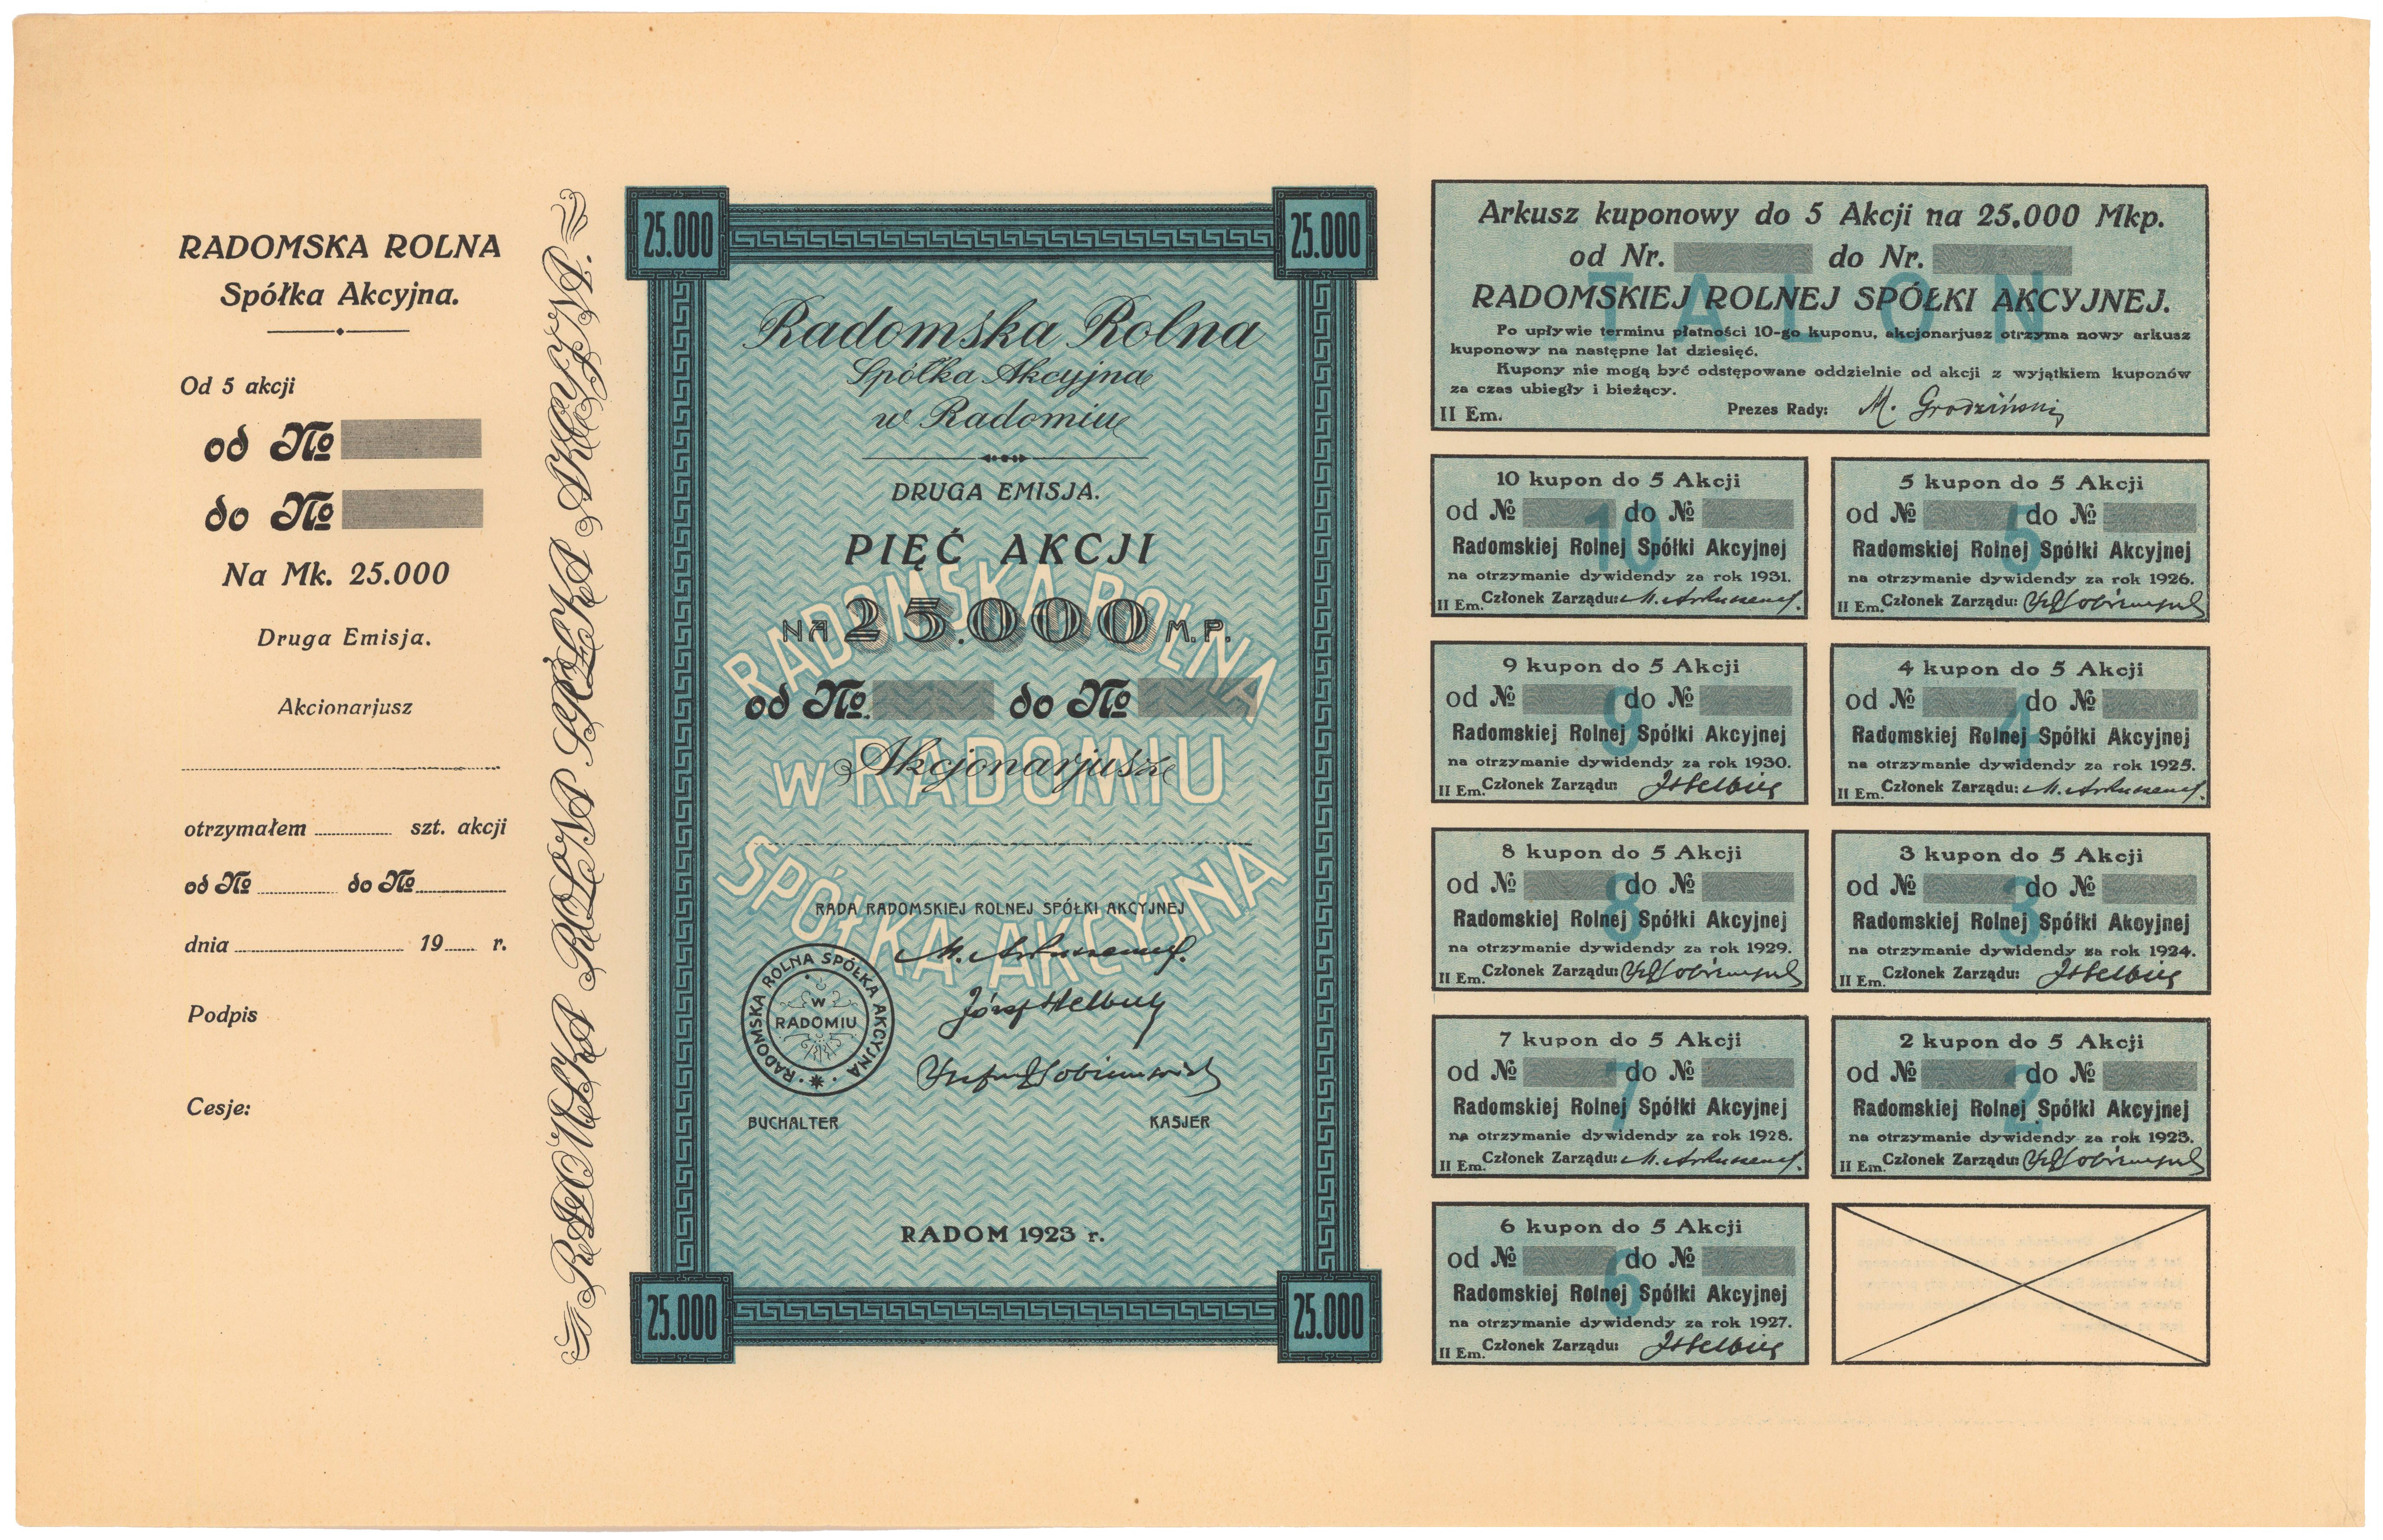 RADOMSKA ROLNA
Spółka Akcyjna.
Od 5 akcji
od №
do №
Na Mk. 25.000
Druga Emisja.
Akcionarjusz
otrzymałem szt. akcji
od № do №
dnia 19 r.
Podpis
Cesje:
RADOMSKA ROLNA SPÓŁKA AKCYJNA.
25.000
25.000
Radomska Rolna
Spółka Akcyjna
w Radomiu
DRUGA EMISJA.
PIĘĆ AKCJI
RADOMSKA ROLNA
NA 25.000 M.P.
od №. do №
w RADOMIU
Akcjonarjusz
SPÓŁKA AKCYJNA
RADA RADOMSKIEJ ROLNEJ SPÓŁKI AKCYJNEJ
RADOMSKA ROLNA SPÓŁKA AKCYJNA
W
RADOMIU
BUCHALTER KASJER
RADOM 1923 r.
25.000
25.000
Arkusz kuponowy do 5 Akcji na 25.000 Mkp.
od Nr. do Nr.
TALON
RADOMSKIEJ ROLNEJ SPÓŁKI AKCYJNEJ.
Po upływie terminu płatności 10-go kuponu, akcjonarjusz otrzyma nowy arkusz
kuponowy na następne lat dziesięć.
Kupony nie mogą być odstępowane oddzielnie od akcji z wyjątkiem kuponów
za czas ubiegły i bieżący.
II Em. Prezes Rady: M. Grodziński
10 kupon do 5 Akcji
od № do №
10
Radomskiej Rolnej Spółki Akcyjnej
na otrzymanie dywidendy za rok 1931.
II Em. Członek Zarządu:
5 kupon do 5 Akcji
od № do №
5
Radomskiej Rolnej Spółki Akcyjnej
na otrzymanie dywidendy za rok 1926.
II Em. Członek Zarządu:
9 kupon do 5 Akcji
od № do №
9
Radomskiej Rolnej Spółki Akcyjnej
na otrzymanie dywidendy za rok 1930.
II Em. Członek Zarządu:
4 kupon do 5 Akcji
od № do №
4
Radomskiej Rolnej Spółki Akcyjnej
na otrzymanie dywidendy za rok 1925.
II Em. Członek Zarządu:
8 kupon do 5 Akcji
od № do №
8
Radomskiej Rolnej Spółki Akcyjnej
na otrzymanie dywidendy za rok 1929.
II Em. Członek Zarządu:
3 kupon do 5 Akcji
od № do №
3
Radomskiej Rolnej Spółki Akcyjnej
na otrzymanie dywidendy za rok 1924.
II Em. Członek Zarządu:
7 kupon do 5 Akcji
od № do №
7
Radomskiej Rolnej Spółki Akcyjnej
na otrzymanie dywidendy za rok 1928.
II Em. Członek Zarządu:
2 kupon do 5 Akcji
od № do №
2
Radomskiej Rolnej Spółki Akcyjnej
na otrzymanie dywidendy za rok 1923.
II Em. Członek Zarządu:
6 kupon do 5 Akcji
od № do №
6
Radomskiej Rolnej Spółki Akcyjnej
na otrzymanie dywidendy za rok 1927.
II Em. Członek Zarządu: